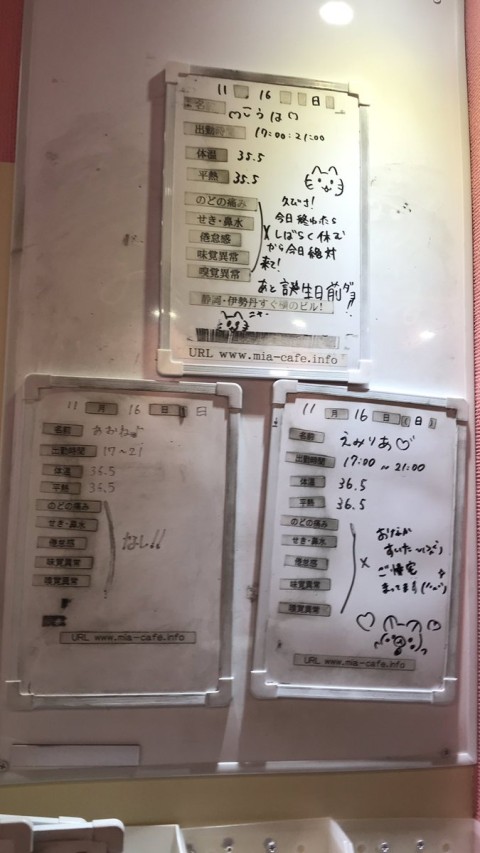 11 月 16 日
名前 ♡こうは♡
出勤時間 17:00:21:00
体温 35.5
平熱 35.5
のどの痛み
せき・鼻水
倦怠感
味覚異常
嗅覚異常
×
久びさ!
今日終わったら
しばらく休で
から今日絶対
来て!
あと誕生日前ダヨ
静岡・伊勢丹すぐ横のビル!
ニャー
URL www.mia-cafe.info
11 月 16 日
名前
出勤時間 17~21
体温 36.5
平熱 36.5
のどの痛み
せき・鼻水
倦怠感
味覚異常
嗅覚異常
なし!!
URL www.mia-cafe.info
11 月 16 日
名前 えみりあ♡
出勤時間 17:00 ~ 21:00
体温 36.5
平熱 36.5
のどの痛み
せき・鼻水
倦怠感
味覚異常
嗅覚異常
×
おなか
すいた
ご帰宅
まってます
URL www.mia-cafe.info